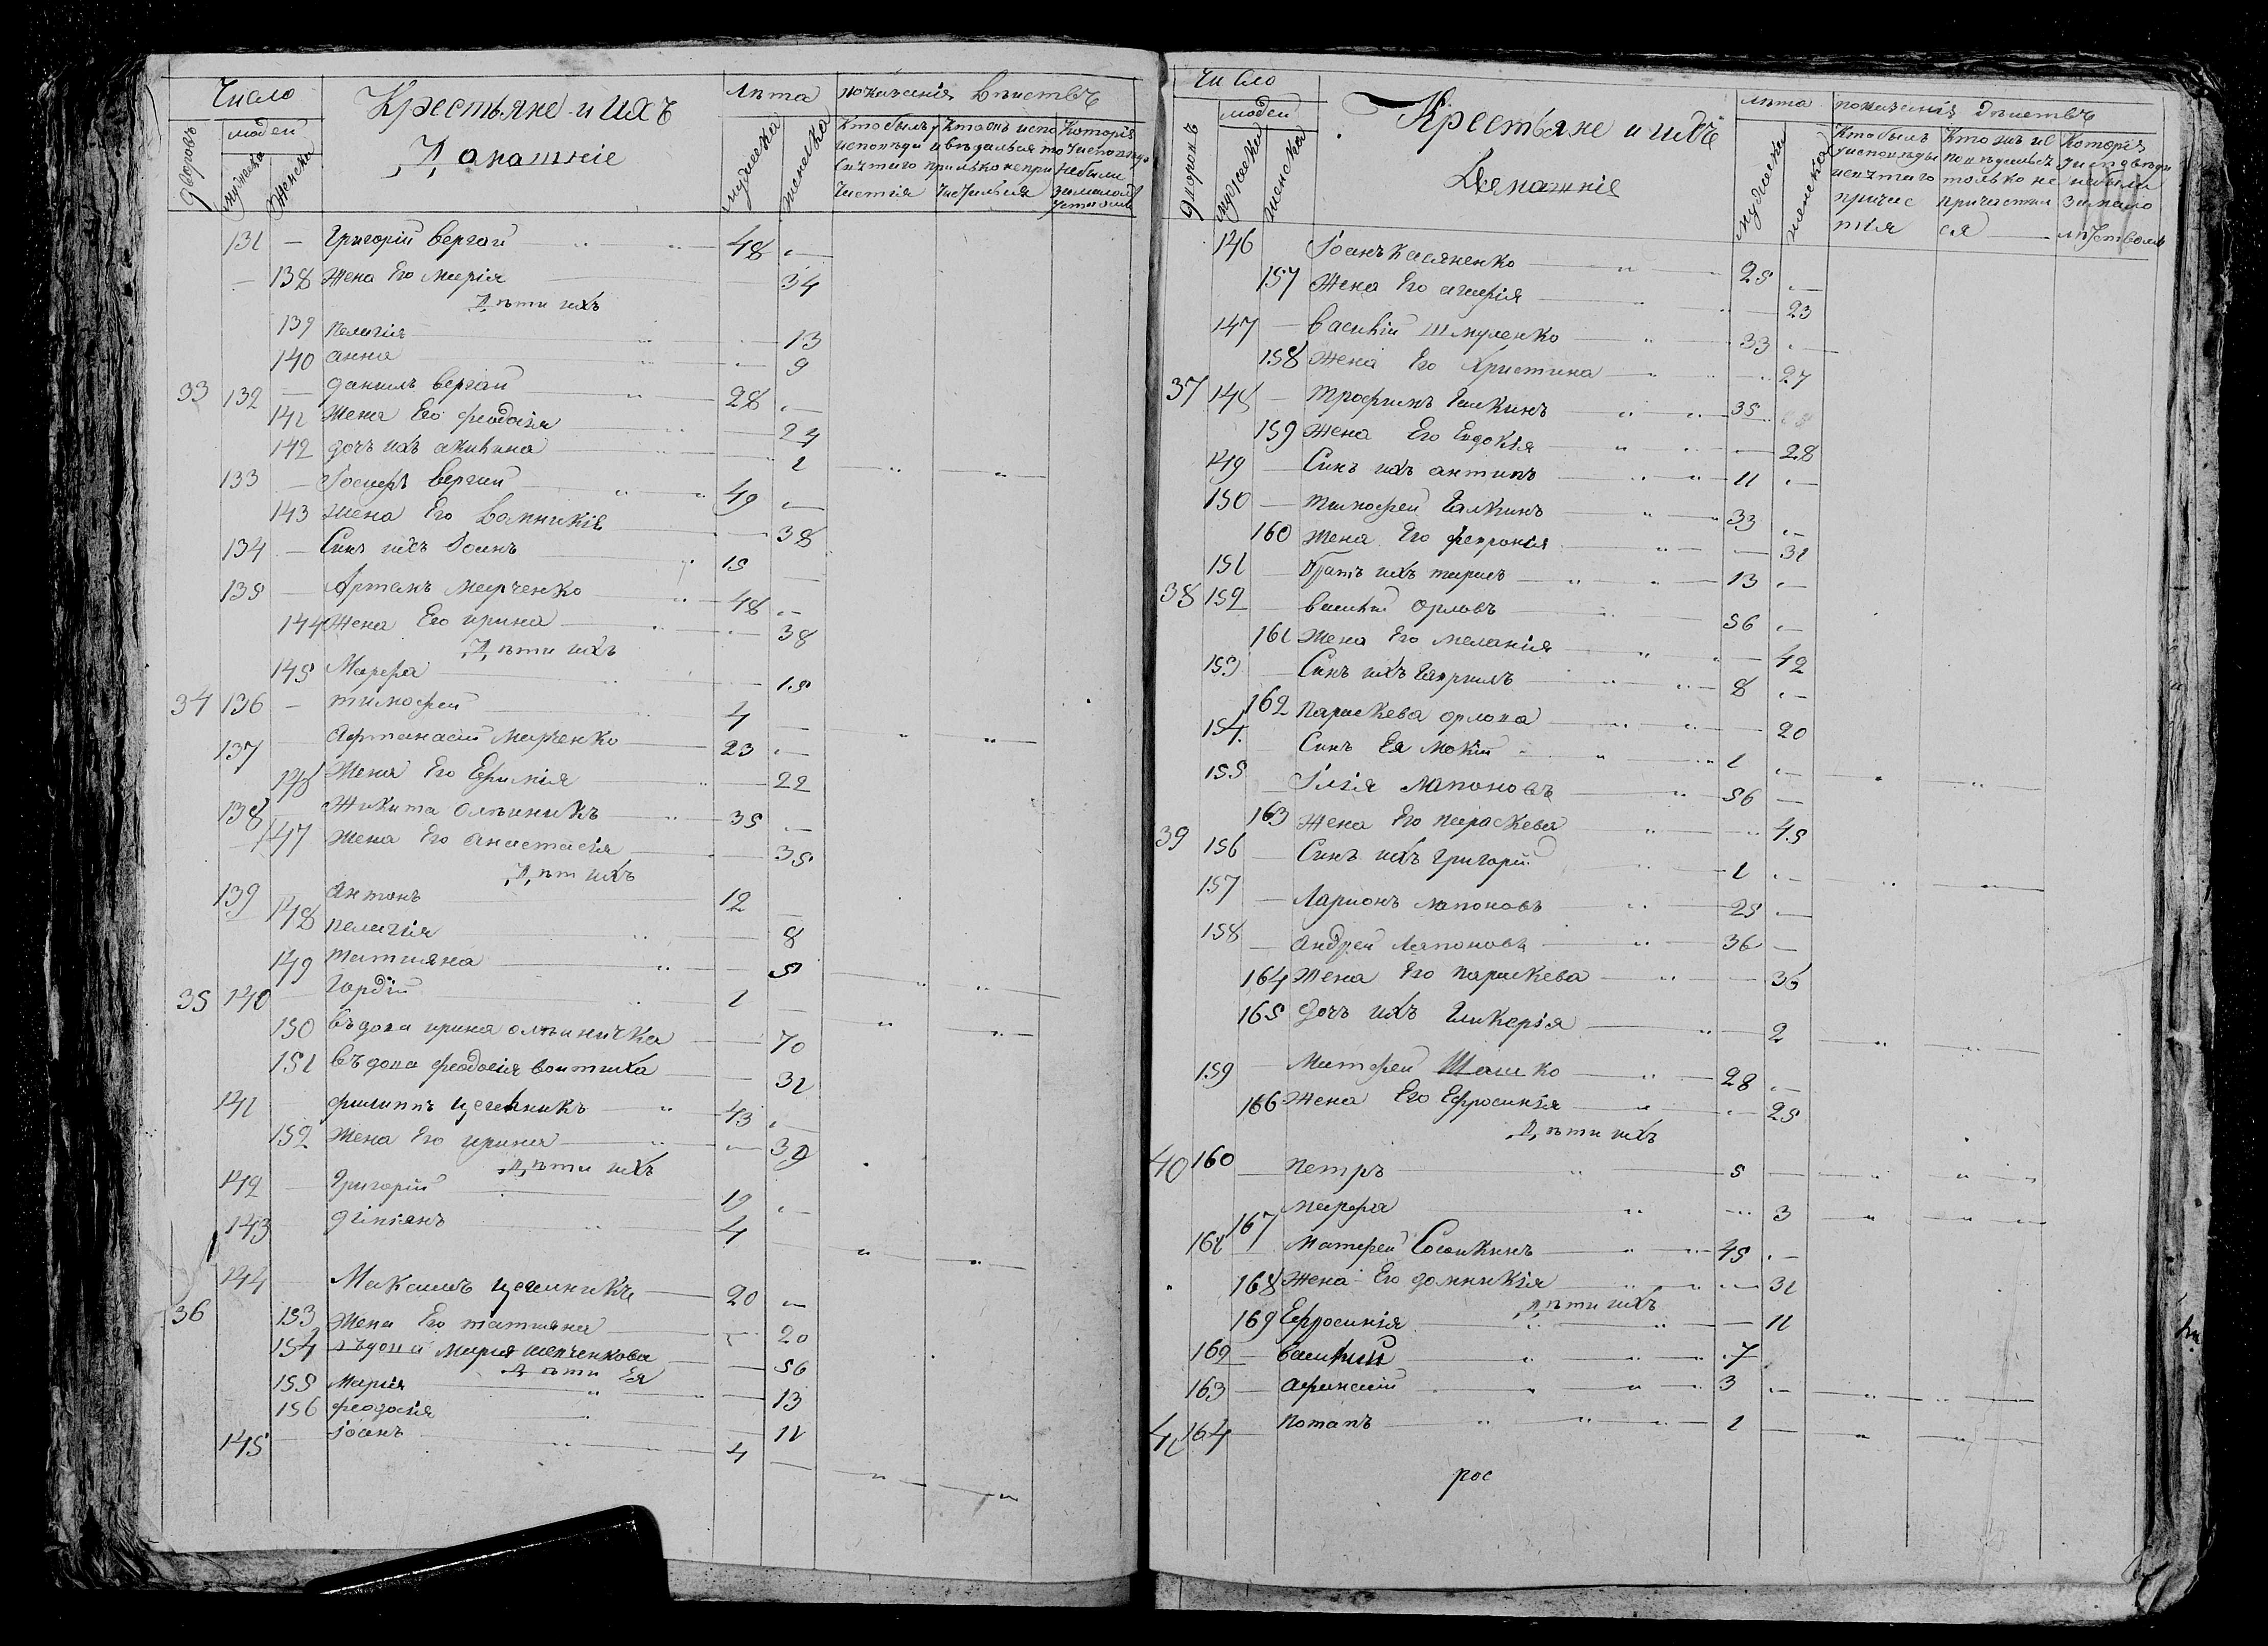 Число
Крестьяне и Ихъ
Домашніе
Лѣта
показанія дѣиствъ
дворовъ
людей
мужеска
женска
мужеска
женска
Кто былъ у исповѣди и святаго причастія
131 — Григорій вергай 48 —
— 138 Жена Его Марія 34
Дѣти ихъ
139 пелагія 13
140 анна 9
33 132 — данилъ вергай 28 —
141 Жена Его феодосія 24
142 дочъ ихъ акилина 1
133 — Іосифъ вергай 49 —
143 Жена Его Домникія 38
134 — Синъ ихъ Іоанъ 15
135 — Артемъ Марченко 48 —
144 Жена Его ирина 38
Дѣти ихъ
145 Марфа 15
34 136 — тимофей 4 —
137 — Афтанасій Марченко 23 —
146 Жена Его Ефимія 22
138 Никита Олѣиникъ 35 —
147 Жена Его Анастасія 35
Дѣт ихъ
139 Антонъ 12 —
148 пелагія 8
149 татияна 5
35 140 — Гордій 1 —
150 въдова ирина олѣиничка 70
151 въдова феодосія воитиха 31
141 филиппъ Цегелникъ 43 —
152 Жена Его ирина 39
Дѣти ихъ
142 — Григорій 19 —
143 діміянъ 4
144 — Максимъ Цегелникъ 20 —
36 153 Жена Его татияна 20
154 въдова Мария Шевченкова 56
Дѣти Ея
155 Марія 13
156 феодосія 11
145 — Іоанъ 4 —
Число
Крестьяне и ихъ
Домашніе
лѣта
показанія дѣиствъ
дворовъ
людей
мужеска
женска
мужеска
женска
146 Іоанъ Касяненко 25 —
157 Жена Его Марія 23
147 — василій Шмуленко 33 —
158 Жена Его Христина 27
37 148 — Трофимъ Галкинъ 35
159 Жена Его Евдокія 28
149 — Синъ ихъ антипъ 11 —
150 — тимофей Галкинъ 33 —
160 Жена Его февронія 31
151 — Братъ ихъ тарасъ 13 —
38 152 — василій орловъ 56 —
161 Жена Его меланія 42
153 — Синъ ихъ Гавриилъ 8 —
162 Параскева орлова 20
154 — Синъ Ея мокій 1 —
155 — Ілія Лапоновъ 56 —
163 Жена Его параскева 45
39 156 — Синъ ихъ григорій 1 —
157 — Ларионъ лапоновъ 25 —
158 — андрей Лапоновъ 36 —
164 Жена Его параскева 35
165 дочъ ихъ Гликерія 2
159 — Матфей Шашко 28 —
166 Жена Его Ефросинія 25
Дѣти ихъ
40 160 — петръ 5 —
167 марфа 3
161 — Матфей Сосинкинъ 45 —
168 Жена Его домникія 31
Дѣти ихъ
169 Ефросинія 11
162 — василий 7
163 — афанасій 3 —
41 164 — потапъ 1 —
рос